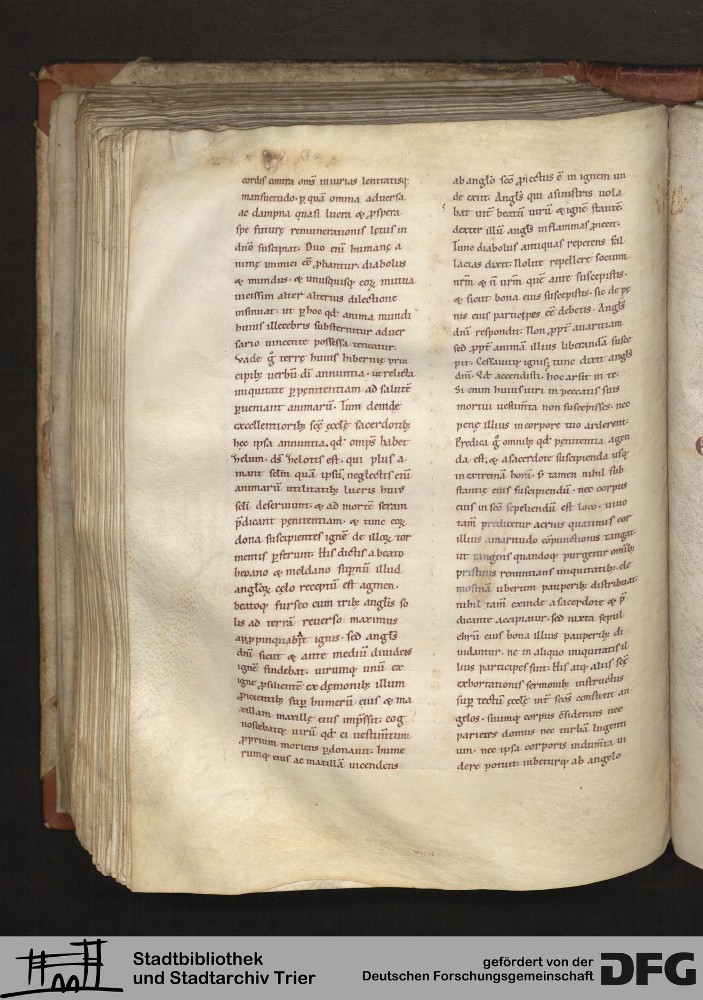 cordis contra om̄s iniurias lenitatisq;
mansuetudo. ꝑ quā omnia aduersa
ac dampna quasi lucra & ꝓspera
spe future remunerationis letus in
dn̄o suscipiat. Duo eni humanę a
nimę inimici eē ꝓbantur. diabolus
& mundus. & unusquisq; eoꝝ mutua
uicissim alter alterius dilectione
insinuat. ut ꝑ hoc qd̄ anima mundi
huius illecebris substernitur aduer
sario uincente possessa teneatur.
Vade ḡ terrę huius hibernię prin
cipib; uerbū dī annuntia. ut relicta
iniquitate ꝑ pęnitentiam ad salutē
ꝑueniant animarū. Tum deinde
excellentiorib; scę ęcclę sacerdotib;
hęc ipsa annuntia. qd̄ omip̄s habet
velum. ds̄ velotis est. qui plus a
mant sclm̄ quā ipsū. neglectis eni
animarū utilitatib; lucris huiꝰ
scli deseruiunt. & ad mortē seram
p̄dicant penitentiam. & tunc eoꝝ
dona suscipientes ignē de illoꝝ tor
mentis ꝑferunt. His dictis a beato
beoano & meldano supnū illud
angloꝝ cęlo receptū est agmen.
beatoq; furseo cum trib; anglis so
lis ad terrā reuerso maximus
appropinquabat ignis. sed angls̄
dn̄i sicut & ante mediū diuidens
ignē findebat. uirumq; unū ex
igne ꝓsilientē ex dęmonib; illum
ꝓicientib; sup humerū eius & ma
xillam maxillę eius imp̄ssit. cog
noscebatq; uirū qd̄ ei uestim̄tum
ꝓprium moriens ꝑdonauit. hume
rumq; eius ac maxillā incendens
ab anglo scō ꝓiectus ē in ignem un
de exiit. Angls̄ qui asinistris uola
bat int̄ beatū uirū & ignē stantē.
dexter illū angls̄ in flammas ꝓiecit.
Tunc diabolus antiquas repetens fal
lacias dixit. Nolite repellere socium
nr̄m & ū urm̄ quē ante suscepistis.
& sicut bona eius suscepistis. sic de pę
nis eius participes eē debetis. Angls̄
dn̄i respondit. Non ꝓpt̄ auaritiam
sed ꝓpt̄ animā illius liberandā susce
pit. Cessauitq; ignis; tunc dixit angls̄
dn̄i. Qd̄ accendisti. hoc arsit in te.
Si enim huius uiri in peccatis suis
mortui uestim̄ta non suscepisses. nec
penę illius in corpore tuo arderent.
Predica ḡ omnib; qd̄ pęnitentia agen
da est. & a sacerdote suscipienda usq;
in extremā horā. s; tamen nihil sub
stantię eius suscipiendū. nec corpus
eius in scō sepeliendū est loco. uiuo
tam̄ predicetur acrius quatinus cor
illius amaritudo cōpunctionis tangat
ut tangens quandoq; purgetur omib;
pristinis renuntians iniquitatib; &
uberum pauperib; distribuat
nihil tam̄ exinde a sacerdote & p̄
dicante accipiatur. sed iuxta sepul
chrū eius bona illius pauperib; di
uidantur. ne in aliquo iniquitatis il
lius participes sint. His atq; aliis scę
exhortationis sermonib; instructus
sup tectū ęcclę int̄ scōs constitit an
gelos. suumq; corpus c̄siderans nec
parietes domus nec turbā lugenti
um. nec ipsa corporis indum̄ta in
dere potuit. iubeturq; ab angelo
Stadtbibliothek
und Stadtarchiv Trier
gefördert von der
Deutschen Forschungsgemeinschaft
DFG